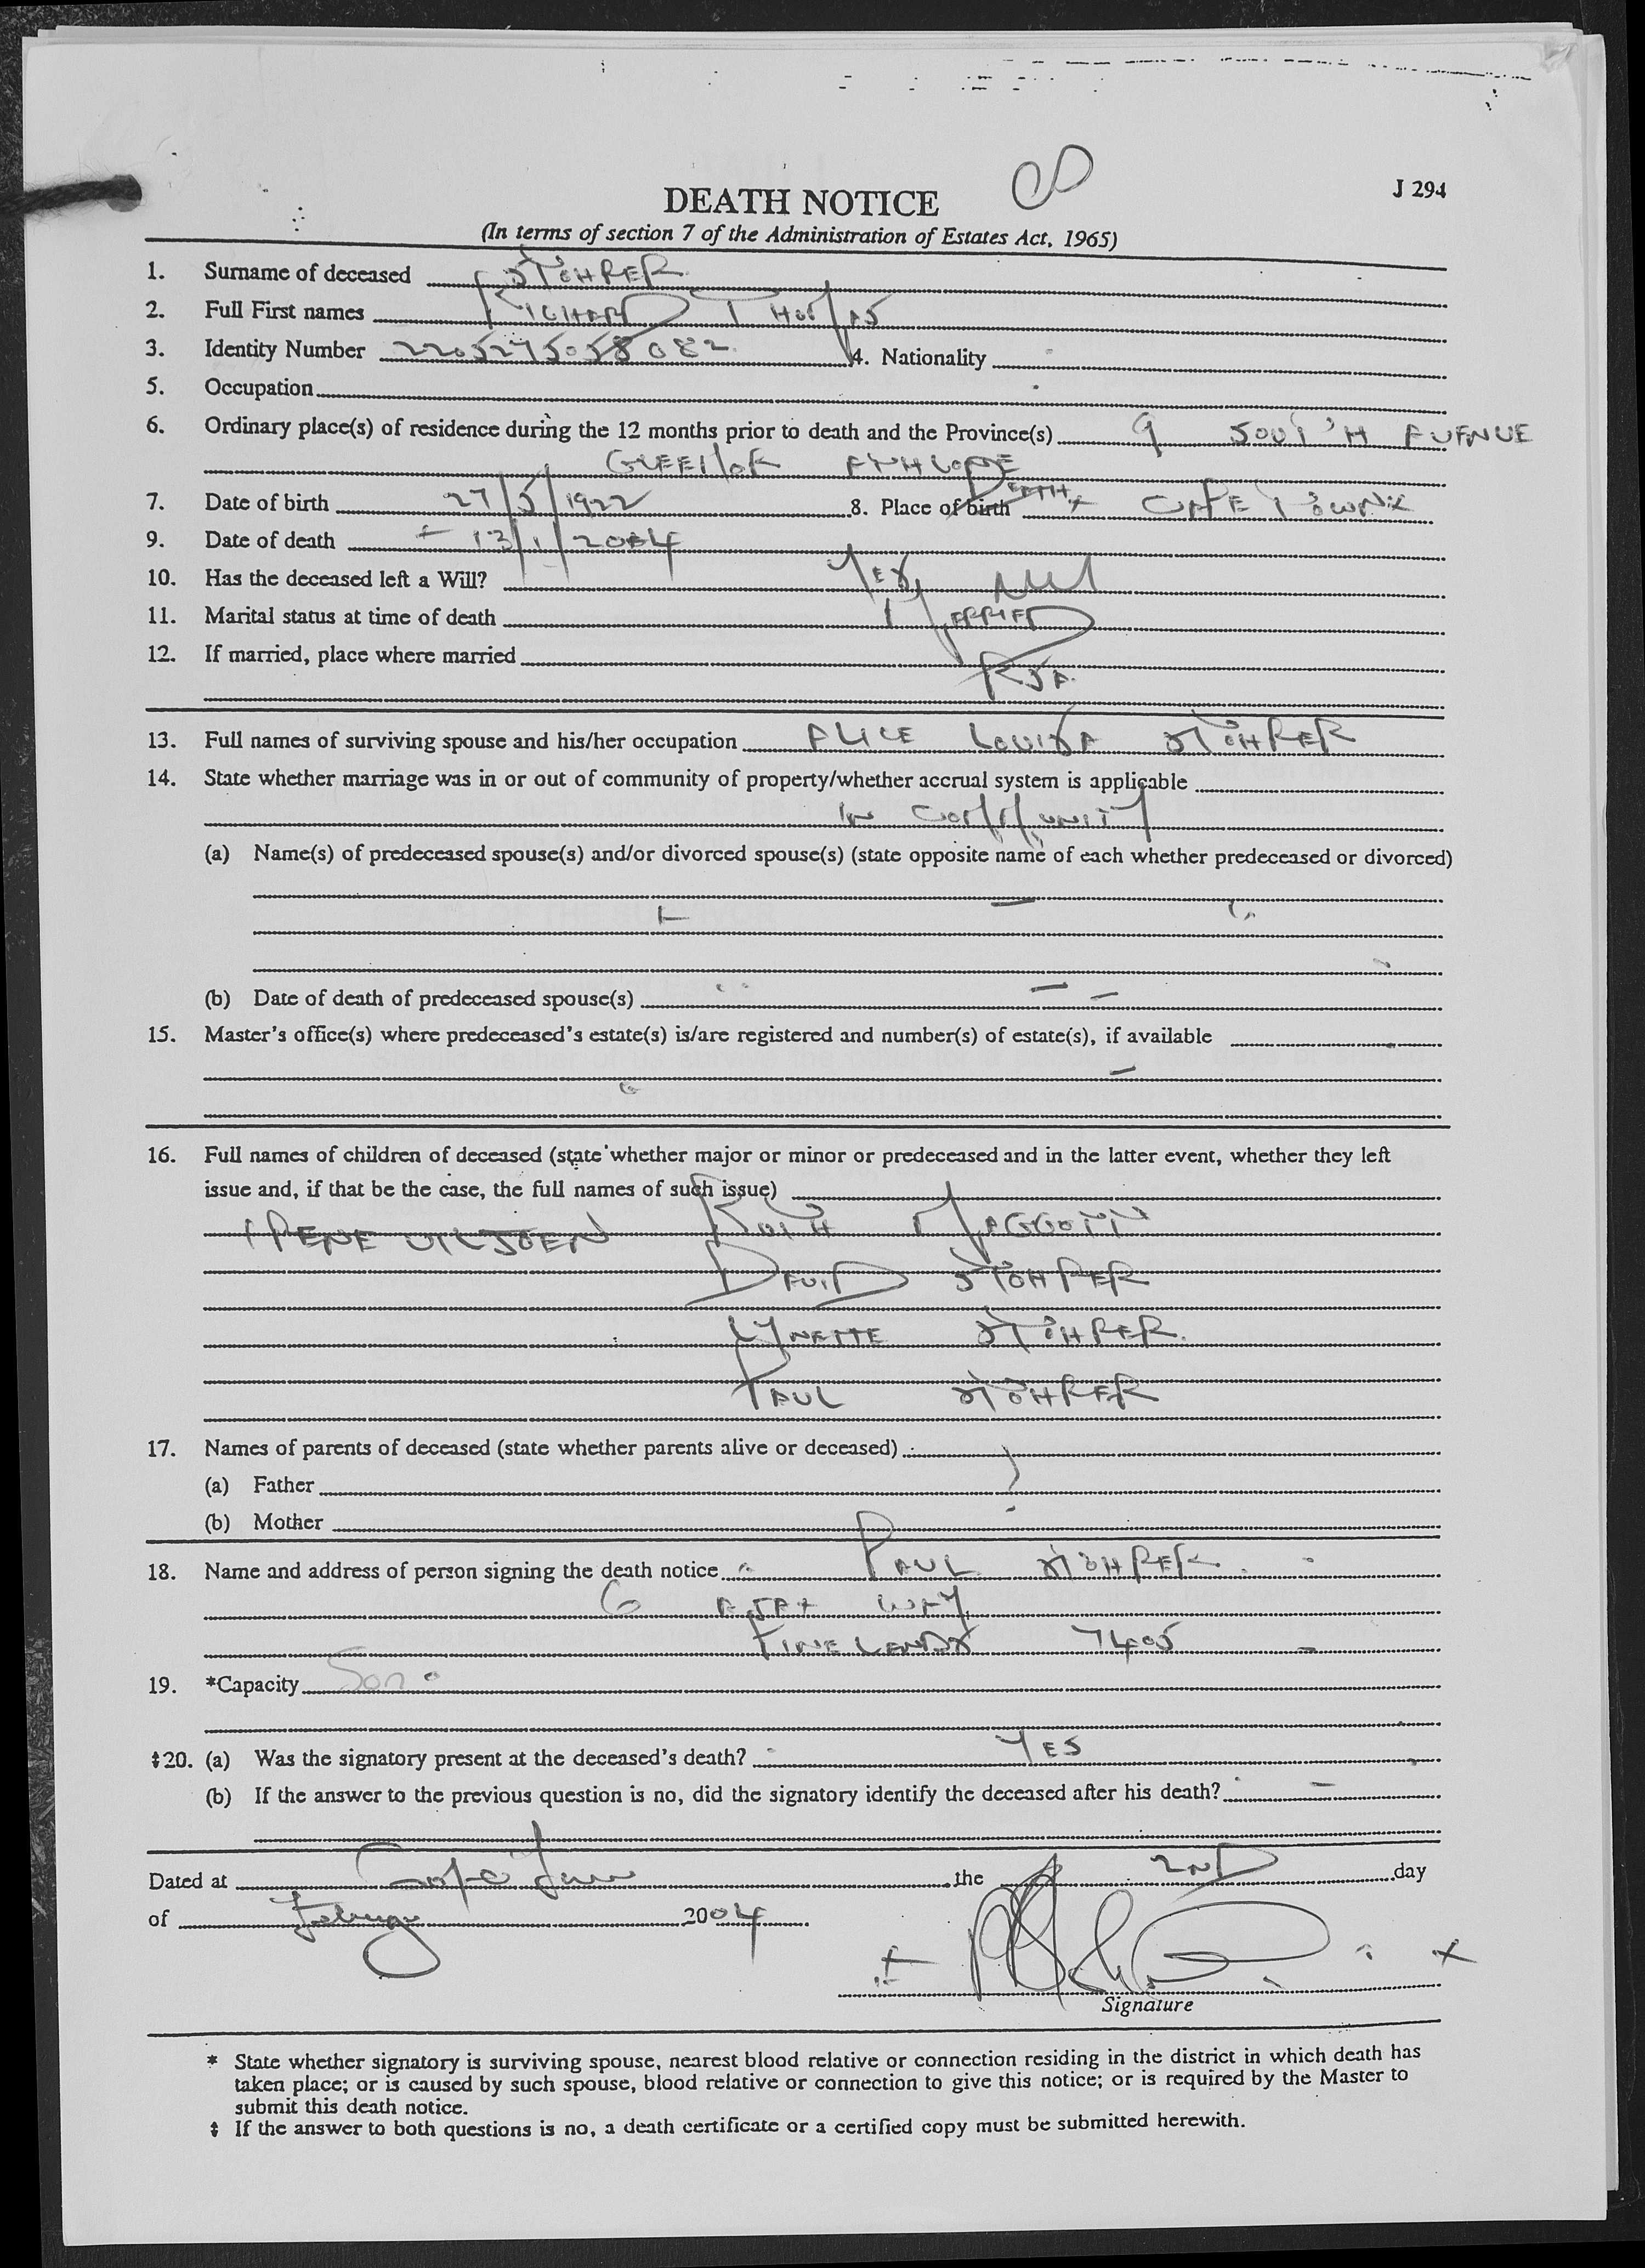 DEATH NOTICE
J 294
(In terms of section 7 of the Administration of Estates Act, 1965)
1. Surname of deceased STOHRER
2. Full First names RICHARD THOMAS
3. Identity Number 2205275058082 4. Nationality
5. Occupation
6. Ordinary place(s) of residence during the 12 months prior to death and the Province(s) 9 SOUTH AVENUE
7. Date of birth 27/5/1922 8. Place of birth DEATH CAPE TOWN
9. Date of death 13/1/2004
10. Has the deceased left a Will? YES
11. Marital status at time of death MARRIED
12. If married, place where married RSA
13. Full names of surviving spouse and his/her occupation ALICE LOUISA STOHRER
14. State whether marriage was in or out of community of property/whether accrual system is applicable
IN COMMUNITY
(a) Name(s) of predeceased spouse(s) and/or divorced spouse(s) (state opposite name of each whether predeceased or divorced)
(b) Date of death of predeceased spouse(s) — —
15. Master's office(s) where predeceased's estate(s) is/are registered and number(s) of estate(s), if available
16. Full names of children of deceased (state whether major or minor or predeceased and in the latter event, whether they left
issue and, if that be the case, the full names of such issue)
IRENE VILJOEN RUTH MAGGOTT
DAVID STOHRER
LYNETTE STOHRER
PAUL STOHRER
17. Names of parents of deceased (state whether parents alive or deceased)
(a) Father
(b) Mother
18. Name and address of person signing the death notice PAUL STOHRER
6 AJAX WAY
PINELANDS 7405
19. *Capacity Son
‡20. (a) Was the signatory present at the deceased's death? YES
(b) If the answer to the previous question is no, did the signatory identify the deceased after his death? —
Dated at Cape Town the 2ND day
of February 2004
Signature
* State whether signatory is surviving spouse, nearest blood relative or connection residing in the district in which death has
taken place; or is caused by such spouse, blood relative or connection to give this notice; or is required by the Master to
submit this death notice.
‡ If the answer to both questions is no, a death certificate or a certified copy must be submitted herewith.